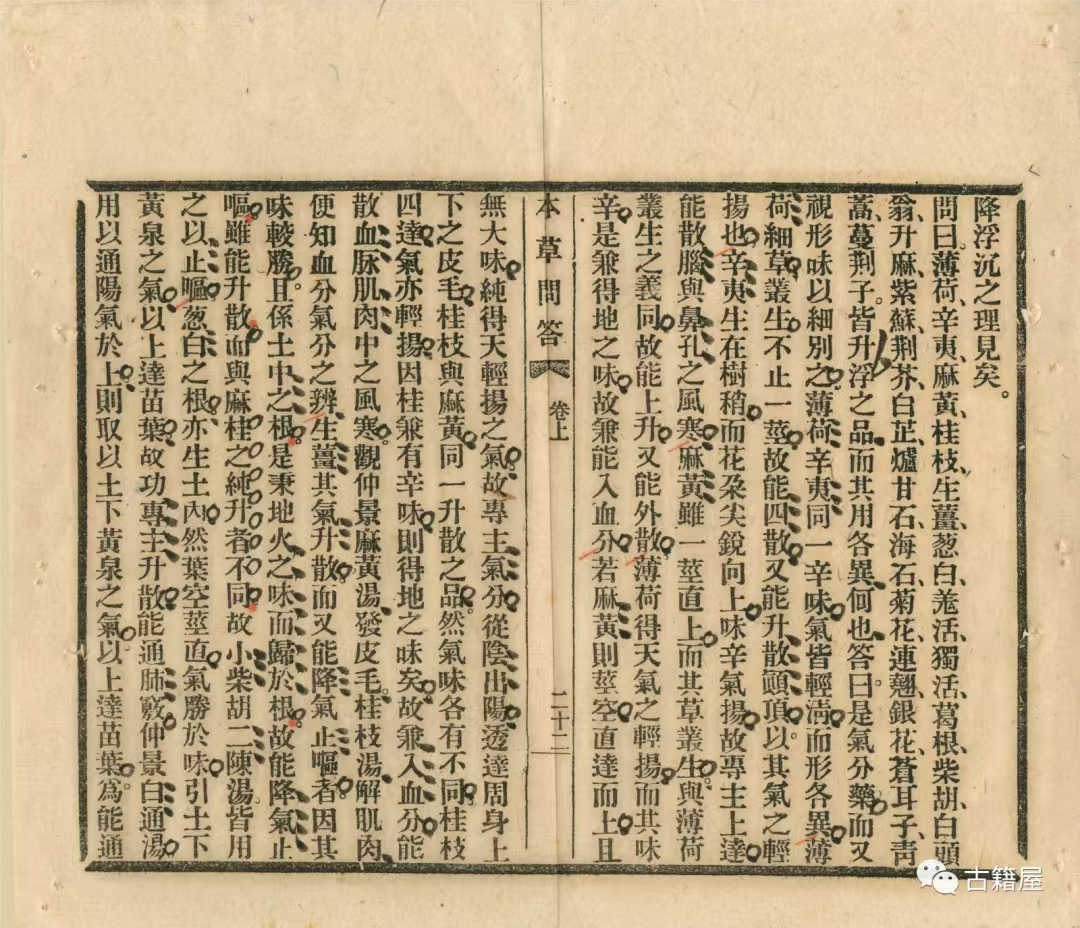 降浮沉之理見矣。
問曰薄荷、辛夷、麻黃、桂枝、生薑、葱白、羗活、獨活、葛根、柴胡、白頭
翁、升麻、紫蘇、荆芥、白芷、爐甘石、海石、菊花、連翹、銀花、蒼耳子、青
蒿、蔓荆子。皆升浮之品而其用各異何也答曰是氣分藥而又
視形味以細別之薄荷辛夷同一辛味氣皆輕淸而形各異薄
荷細草叢生不止一莖故能四散又能升散頭頂以其氣之輕
揚也辛夷生在樹梢而花朶尖銳向上味辛氣揚故專主上達
能散腦與鼻孔之風寒麻黃雖一莖直上而其草叢生與薄荷
叢生之義同故能上升又能外散薄荷得天氣之輕揚而其味
辛是兼得地之味故兼能入血分若麻黃則莖空直達而上且
本草問答 卷上 二十二
無大味純得天輕揚之氣故專主氣分從陰出陽透達周身上
下之皮毛桂枝與麻黃同一升散之品然氣味各有不同桂枝
四達氣亦輕揚因桂兼有辛味則得地之味矣故兼入血分能
散血脈肌肉中之風寒觀仲景麻黃湯發皮毛桂枝湯解肌肉
便知血分氣分之辨生薑其氣升散而又能降氣止嘔者因其
味較勝且係土中之根是秉地火之味而歸於根故能降氣止
嘔雖能升散而與麻桂之純升者不同故小柴胡二陳湯皆用
之以止嘔葱白之根亦生土內然葉空莖直氣勝於味引土下
黃泉之氣以上達苗葉故功專主升散能通肺竅仲景白通湯
用以通陽氣於上則取以土下黃泉之氣以上達苗葉爲能通
古籍屋